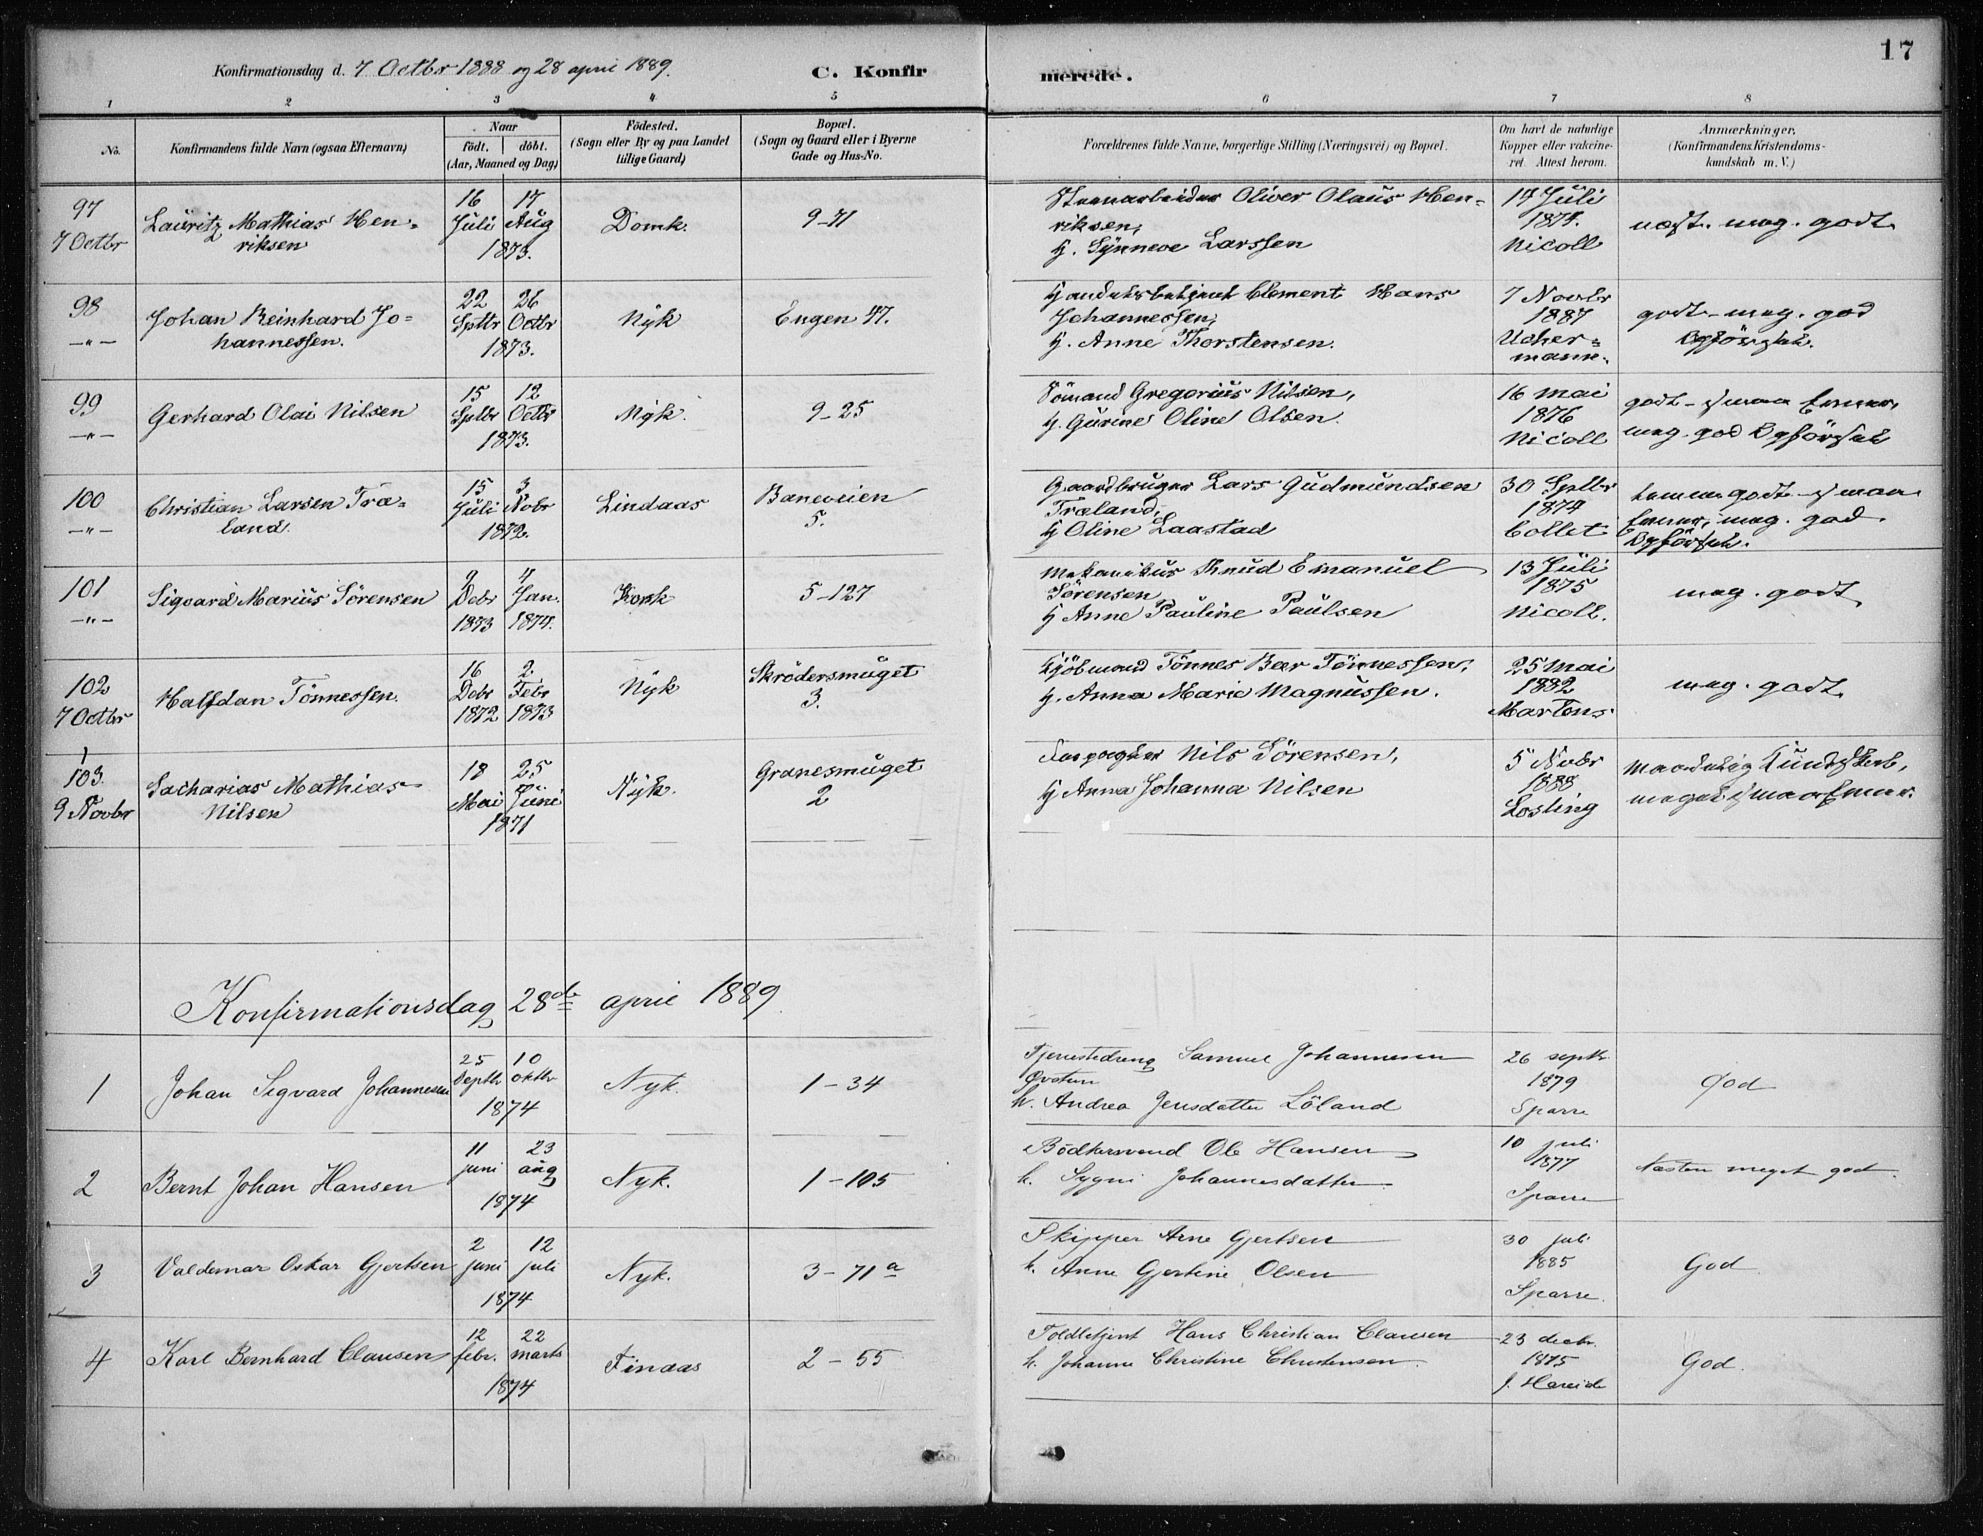 17
Konfirmationsdag d. 7 Octbr 1888 og 28 april 1889. C. Konfirmerede.
1 2 3 4 5 6 7 8
No.
Konfirmandens fulde Navn (ogsaa Efternavn)
Naar
födt. döbt.
(Aar, Maaned og Dag)
Födested.
(Sogn eller By og paa Landet
tillige Gaard)
Bopæl.
(Sogn og Gaard eller i Byerne
Gade og Hus-No.
Forældrenes fulde Navne, borgerlige Stilling (Næringsvei) og Bopæl.
Om havt de naturlige
Kopper eller vakcine-
ret. Attest herom.
Anmærkninger.
(Konfirmandens Kristendoms-
kundskab m. V.)
97
7 Octbr
Lauritz Mathias Hen-
riksen
16 17
Juli Aug
1873.
Domk.
9-71
Oliver Olaus Hen-
riksen,
H. Synneve Larssen
17 Juli
1874.
Nicoll
næst. meg. godt
98
-"-
Johan Reinhard Jo-
hannessen.
22 26
Sptbr Octbr
1873.
Nyk
Engen 47.
Clement Hans
Johannessen,
H. Anne Thorstensen.
7 Novbr
1887
Ucher-
mann.
godt - meg. god
Opförsel.
99
-"-
Gerhard Olai Nilsen
15 12
Sptbr Octbr
1873.
Nyk.
9-25
Sömand Gregorius Nilsen,
H. Gurine Oline Olsen.
16 Mai
1876
Nicoll
godt - smaa Evner,
meg. god Opförsel
100
-"-
Christian Larsen Træ-
land.
15 3
Juli Nobr
1872.
Lindaas
Baneveien
5.
Gaardbruger Lars Gudmundsen
Træland,
H Oline Laastad
30 Sptbr
1874
Collet
godt - smaa
Evner, meg. god
Opförsel.
101
-"-
Sigvard Marius Sörensen
9 4
Debr Jan.
1873 1874.
Korsk
5-127
Mekanikus Knud Emanuel
Sörensen
H Anne Pauline Paulsen
13 Juli
1875
Nicoll.
meg. godt
102
7 Octbr
Halfdan Tönnessen.
16 2
Debr Febr
1872 1873
Nyk
Skrödersmuget
3.
Kjöbmand Tönnes Beer Tönnessen,
H. Anna Marie Magnussen.
25 Mai
1882
Martens.
meg. godt
103.
9 Novbr
Sacharias Mathias
Nilsen
18 25
Mai Juni
1871
Nyk.
Granesmuget
2
Nils Sörensen,
H Anna Johanna Nilsen
5 Nobr
1888
Losting
maadelig Kundskab,
meget smaa Evner.
Konfirmationsdag 28de april 1889
1
Johan Sigvard Johannesen
25 10
Septbr oktbr
1874
Nyk.
1-34
Tjenestedreng Samuel Johannesen
h. Andrea Jensdatter Löland
26 septbr
1879
Sparre
God
2
Bernt Johan Hansen
11 23
juni aug
1874
Nyk.
1-105
Bödkersvend Ole Hansen
h. Sygni Johannesdatter
10 juli
1877
Sparre
Næsten meget god.
3
Valdemar Oskar Gjertsen
2 12
juni juli
1874
Nyk.
3-71a
Skipper Arne Gjertsen
h. Anne Gjertine Olsen
30 juli
1885
Sparre.
God
4
Karl Bernhard Clausen
12 22
febr. marts
1874
Finaas
2-55
Toldbetjent Hans Christian Clausen
h. Johanne Christine Christensen.
23 decbr.
1875
J. Hareide
God.